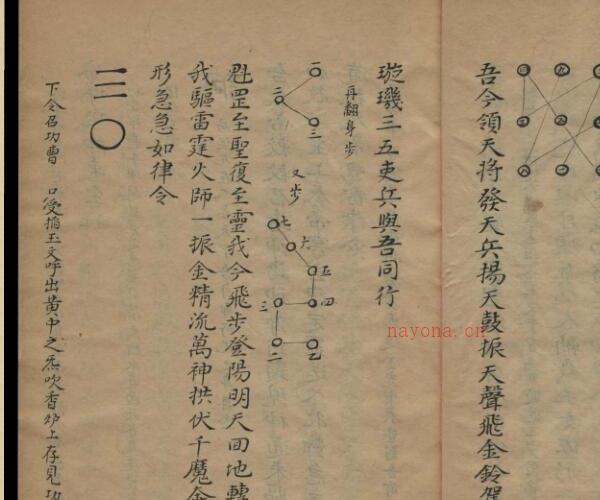 吾今領天将發天兵揚天鼓振天聲飛金鈴
璇璣三五吏兵與吾同行
再翻身步
一
二
三
又步
七
六
五
四
三
二
乙
魁罡至聖復至靈我今飛步登陽明天回地轉
我驅雷霆火師一振金精流萬神拱伏千魔
形急急如律令
三一〇
下令召功曹 口受掐玉文呼出黃中之炁吹香炉上存見功
nayona.cn